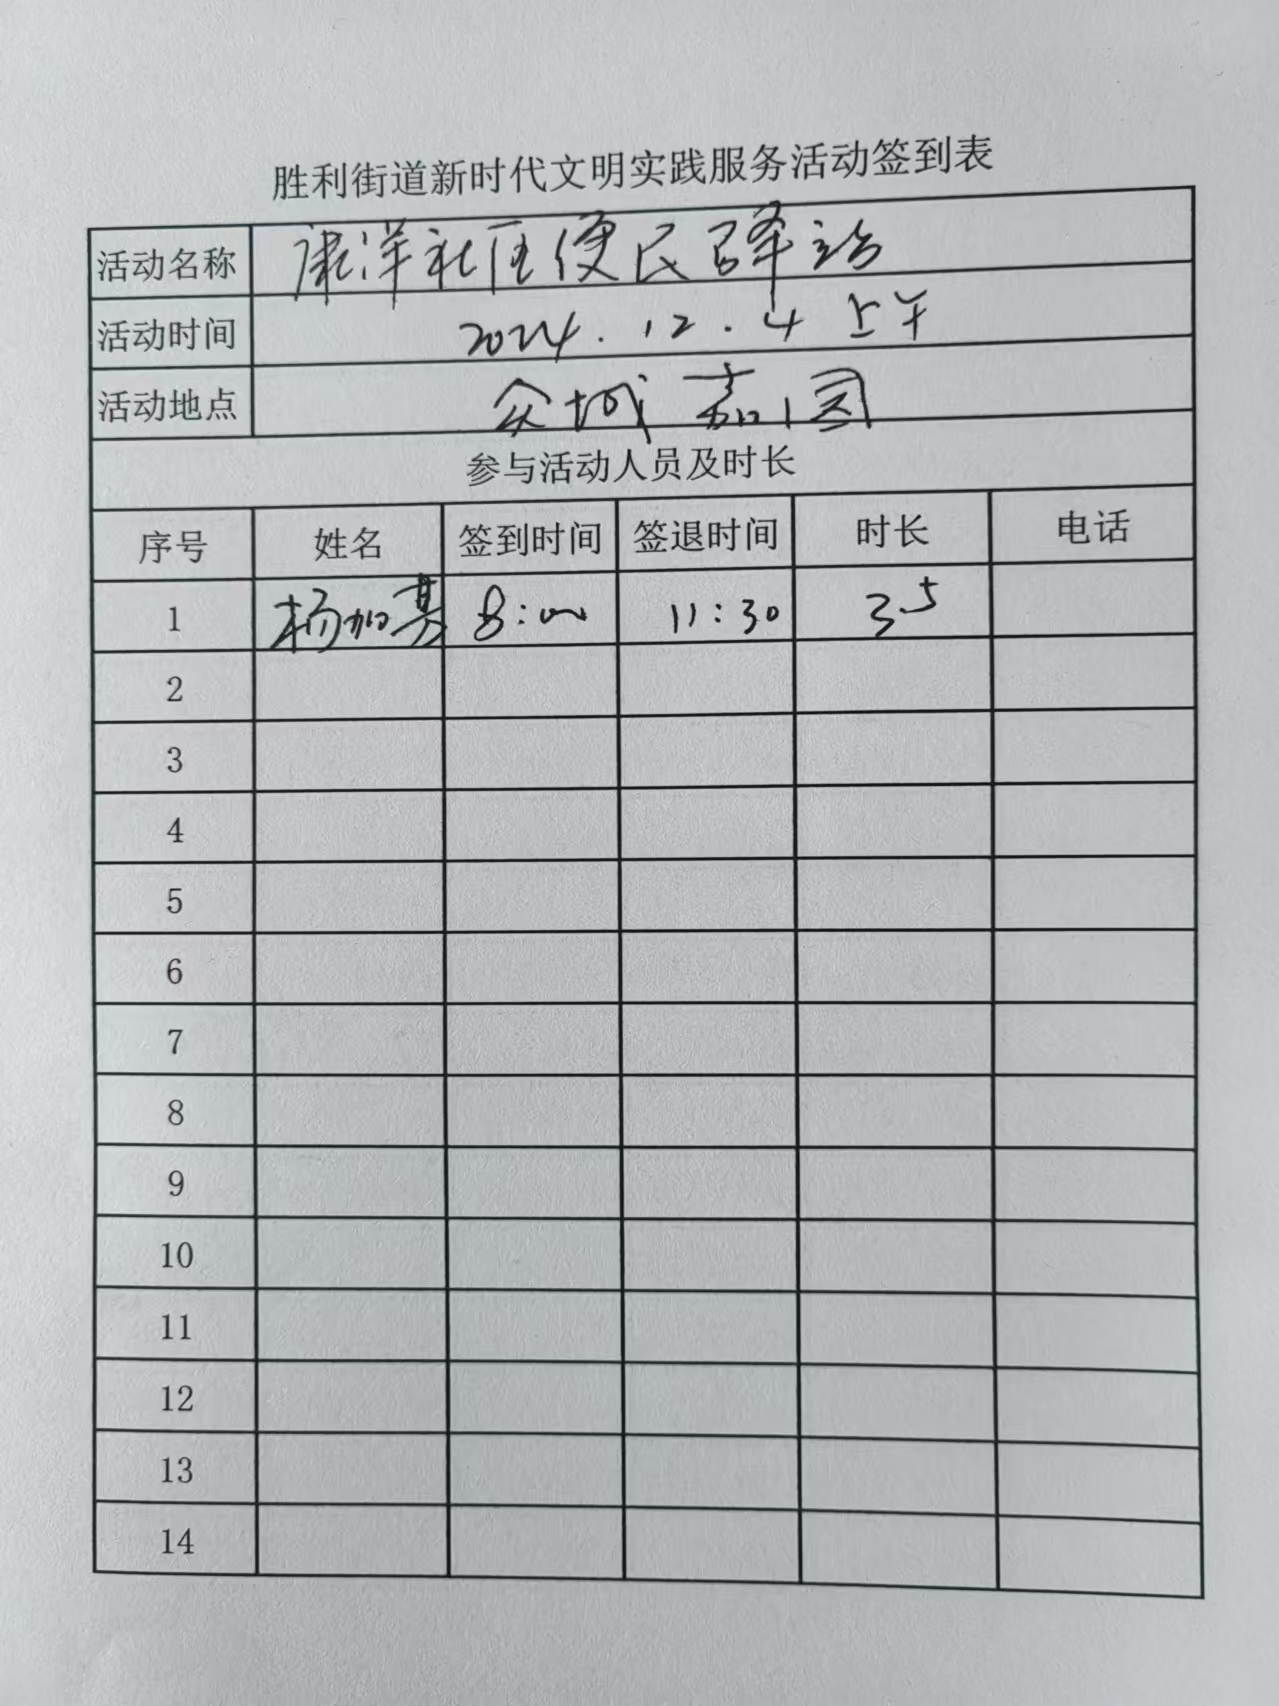 胜利街道新时代文明实践服务活动签到表
活动名称 康洋社区便民驿站
活动时间 2024.12.4 上午
活动地点 众城嘉园
参与活动人员及时长
序号 姓名 签到时间 签退时间 时长 电话
1 杨加 8:00 11:30 3.5
2
3
4
5
6
7
8
9
10
11
12
13
14